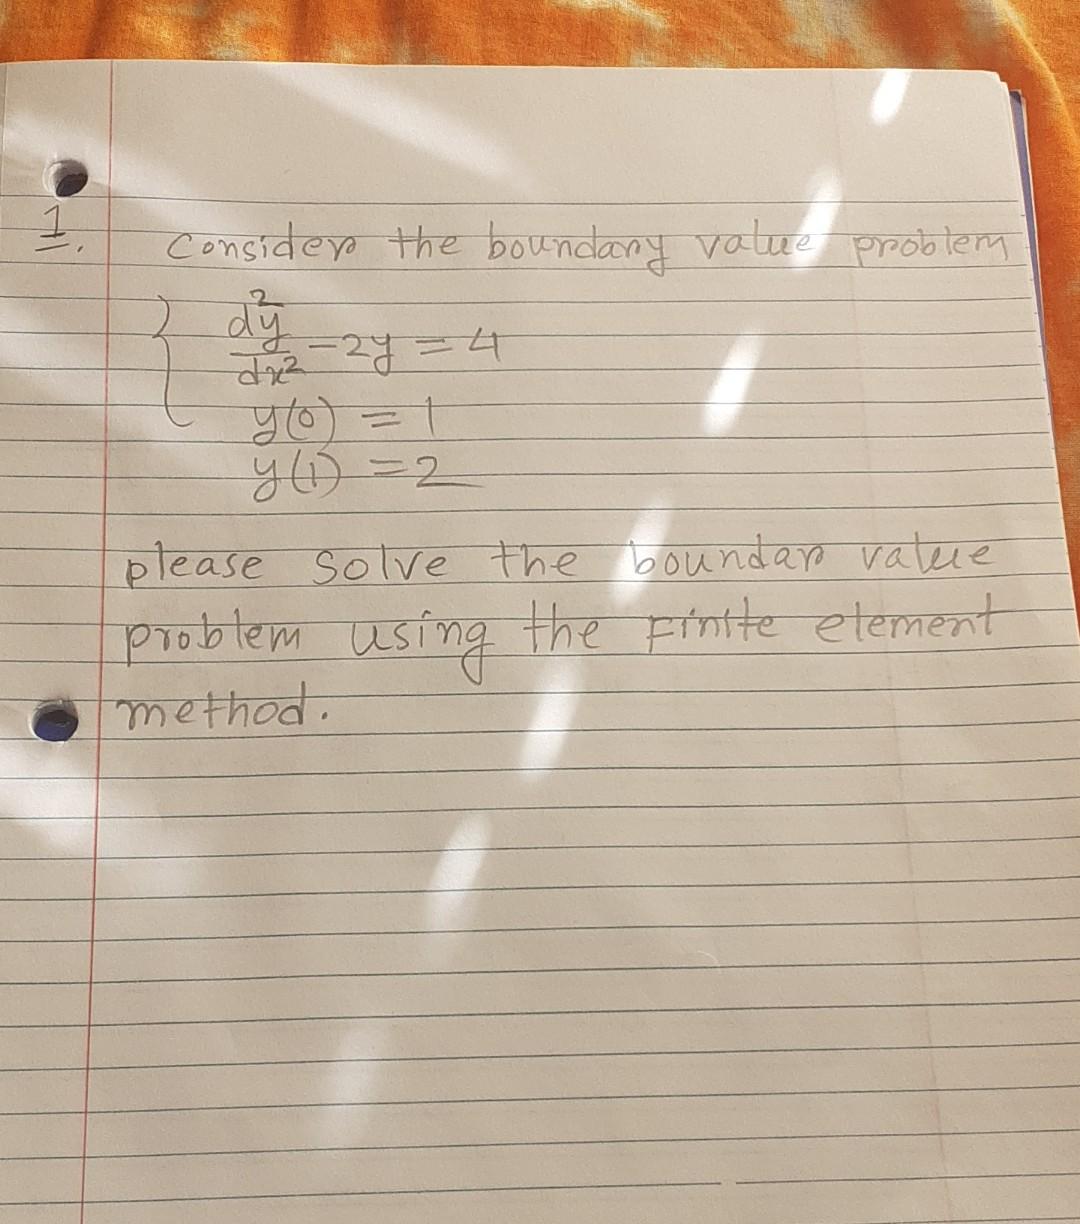 1. Consider the boundary value problem
{ d²y/dx² - 2y = 4
y(0) = 1
y(1) = 2
please solve the boundar value
problem using the Finite element
method.